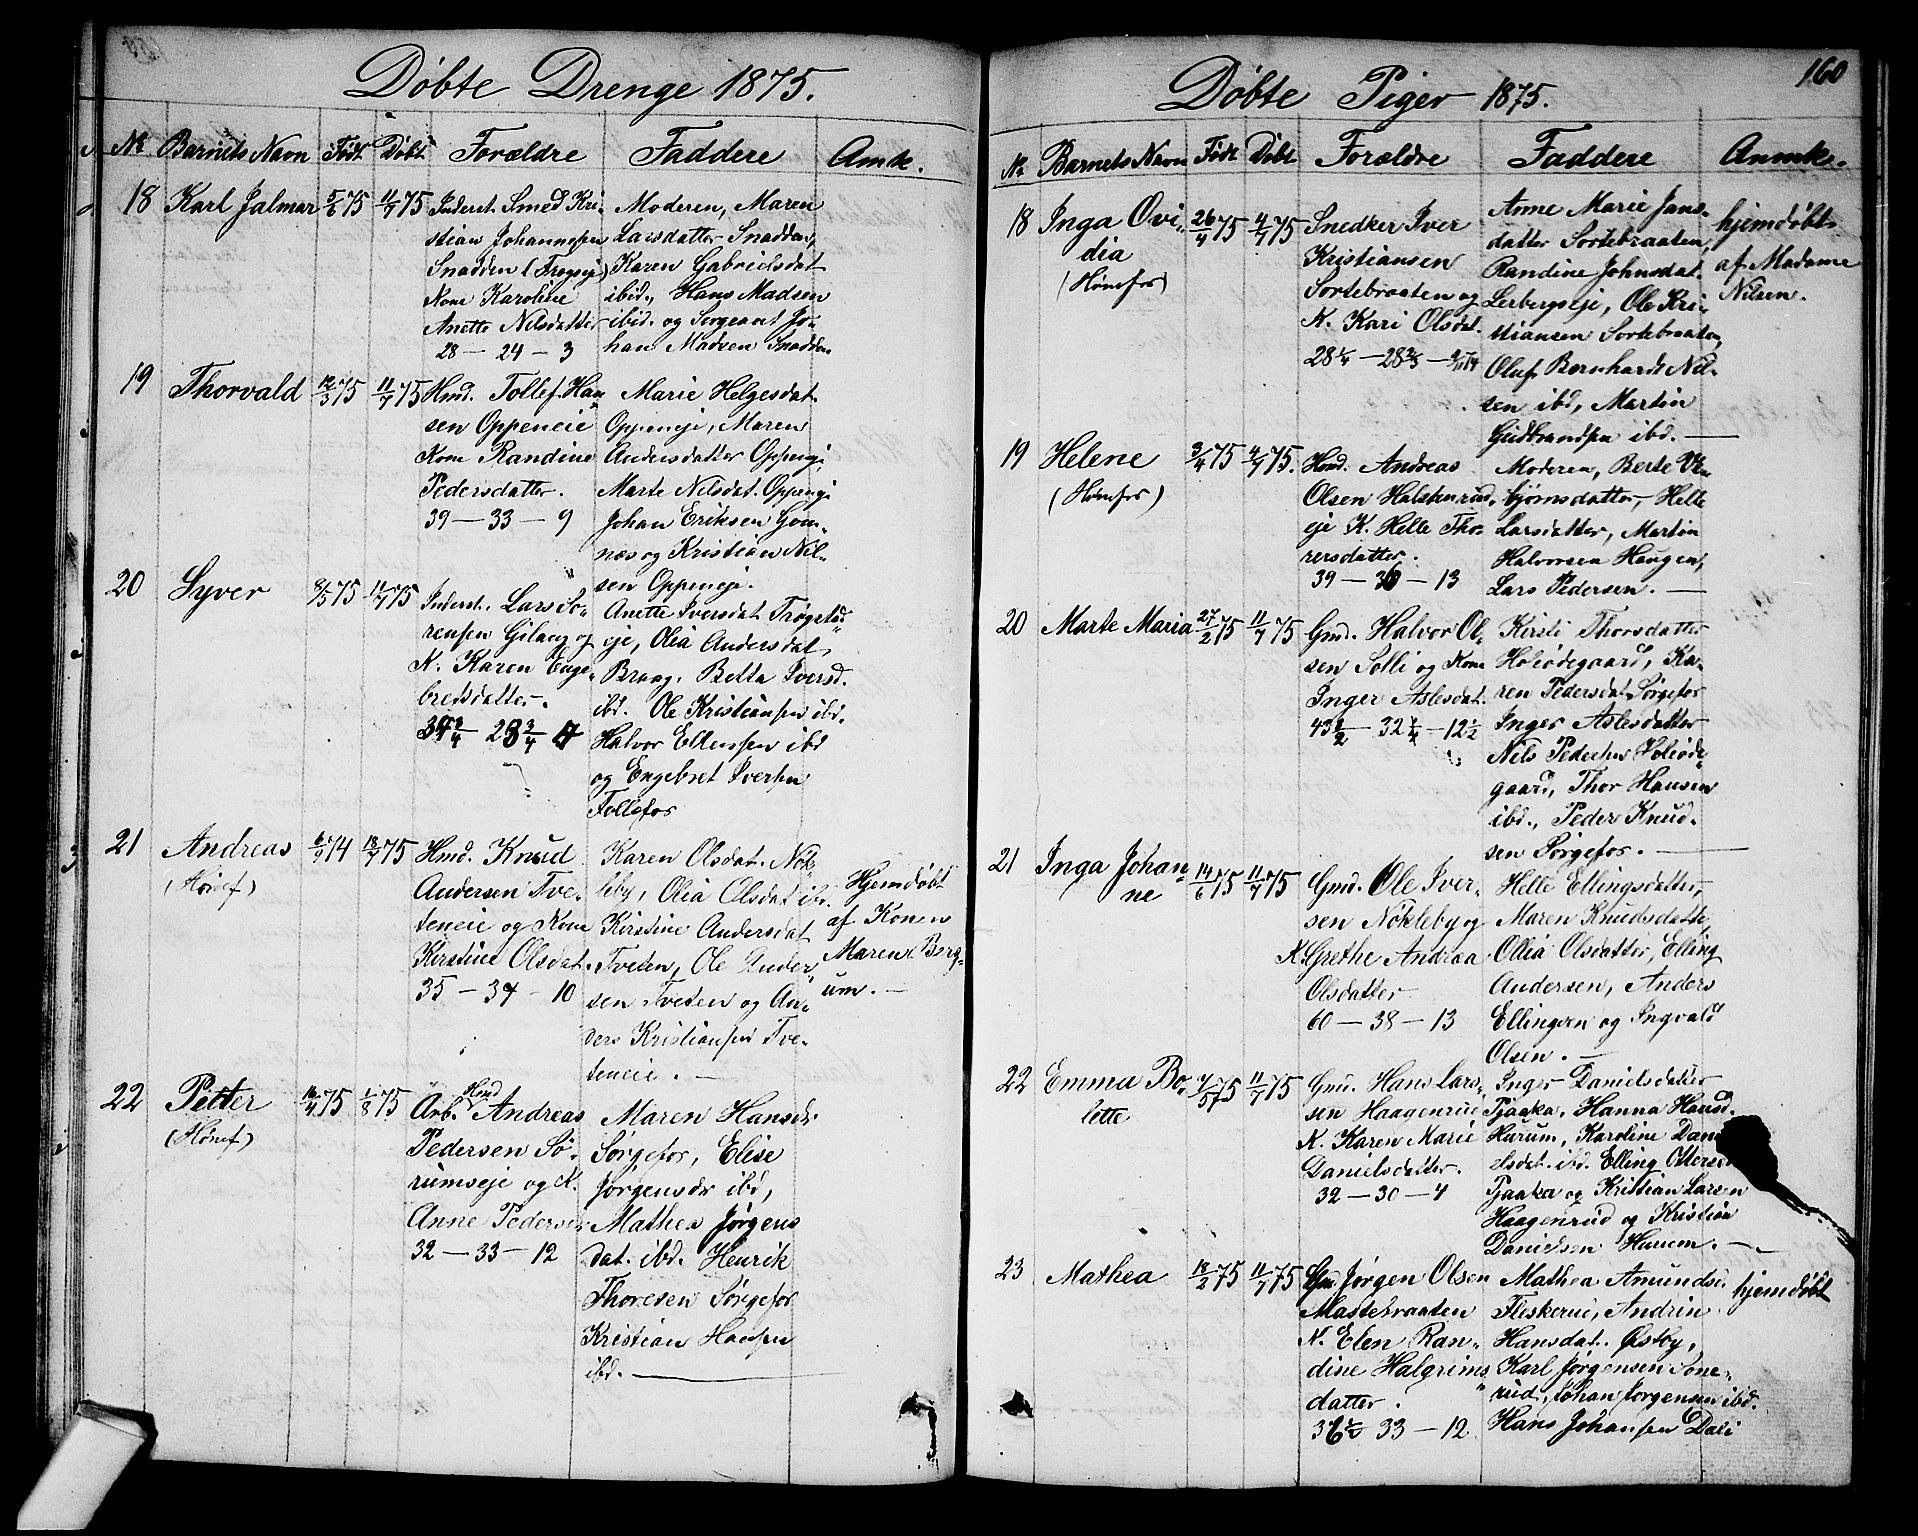 Döbte Drenge 1875.
No Barnets Navn Födt Döbt Forældre Faddere Anmk.
18 Karl Jalmar 5/6 75 11/7 75
Inderst. Smed Kri-
stian Johannesen
Snadden (Frogseje)
Kone Karoline
Anette Nilsdatter
28 — 24 — 3
Moderen, Maren
Larsdatter Snadden,
Karen Gabrielsdat
ibid., Hans Madsen
ibid. og Sergeant Jo-
han Madsen Snadden
19 Thorvald 12/3 75 11/7 75
Hmd. Tollef Han
sen Oppeneie
Kone Randine
Pedersdatter.
39 — 33 — 9
Marie Helgesdat
Oppeneje, Maren
Andersdatter Oppenje
Marte Nilsdat. Oppenje
Johan Eriksen Gom-
næs og Kristian Nil-
sen Oppeneje.
20 Syver 8/5 75 11/7 75
Inderst. Lars Sö-
rensen Gilang og
K. Karen Enge-
bretsdatter.
Anette Iversdat Trögstad
eje, Olia Andersdat,
Braag, Betta Iversd.
ibd. Ole Kristiansen ibd.
Halvor Ellensen ibd
og Engebret Iversen
Follefos
21 Andreas 6/9 74 18/7 75
(Hönef)
Hmd. Knud
Andersen Tve-
teneie og Kone
Kirstine Olsdat.
35 — 34 — 10
Karen Olsdat. Nök-
leby, Olia Olsdat ib.
Kirstine Andersdat
Tveten, Ole Ander-
sen Tveten og An-
ders Kristiansen Tve-
teneie. —
Hjemdöbt
af Konen
Maren Berg-
um. —
22 Petter 16/4 75 1/8 75
(Hönef)
Hmd
Arb. Andreas
Pedersen Sö-
rumseje og K.
Anne Pedersd
32 — 33 — 12
Maren Hansdr
Sörgefos, Elise
Jörgensdr ibd,
Mathea Jörgens
dat. ibd. Henrik
Thoresen Sörgefos
Kristian Hansen
ibd. —
160
Döbte Piger 1875.
No Barnets Navn Födt Döbt Forældre Faddere Anmk.
18 Inga Ovi- 26/4 75 4/7 75
dia
(Hönefos)
Snedker Iver
Kristiansen
Sortebraaten og
K. Kari Olsdat.
Anne Marie Jans-
datter Sortebraaten,
Randine Johnsdat.
Lerbergseje, Ole Kri-
stiansen Sortebraaten,
Oluf Bernhardt Nil-
sen ibd, Martin
Gudbrandsen ibd. —
hjemdöbt
af Madame
Nilsen.
19 Helene 3/4 75 4/7 75.
(Hönefos)
Hmd. Andreas
Olsen Halstenrud
eje K. Helle Tho-
rersdatter.
39 — 36 — 13
Moderen, Berte Ve-
björnsdatter, Helle
Larsdatter, Martin
Halvorsen Haugen,
Lars Pedersen. —
20 Marte Maria 27/2 75 11/7 75
Gmd. Halvor Ol-
sen Solli og Kone
Inger Aslesdat.
Kirsti Thorsdatter
Holeödegaard, Ka-
ren Pedersdat Sörgefos
Inger Aslesdatter
Nils Pedersen Holeöde
gaard, Thor Hansen
ibd., Peder Knud-
sen Sörgefos. —
21 Inga Johan- 14/6 75 11/7 75
ne
Gmd. Ole Iver-
sen Nökleby og
K. Grethe Andrea
Olsdatter
60 — 38 — 13
Helle Ellingsdatter,
Maren Knudsdatte
Ollia Olsdatter, Elling
Andersen, Anders
Ellingsen og Ingvald
Olsen. —
22 Emma Bo- 11/7 75
lette
Gmd. Hans Lars-
sen Haagenrud
K. Karen Marie
Danielsdatter.
32 — 30 — 4
Inger Danielsdatter
Pjaaka, Hanna Hansd.
Hurum, Karoline Dani
elsdat. ibd. Elling Ottersen
Pjaaka og Kristian Larsen
Haagenrud og Kristian
Danielsen Hurum. —
23 Mathea 18/2 75 11/7 75
Gmd. Jörgen Olsen
Mastebraaten
K. Elen Ran-
dine Halgrims
datter.
Mathea Amundsd.
Fleskerud, Andrin
Hansdat. Østby,
Karl Jörgensen Sone-
rud, Johan Jörgensen ibd.
Hans Johansen Dali
hjemdöbt